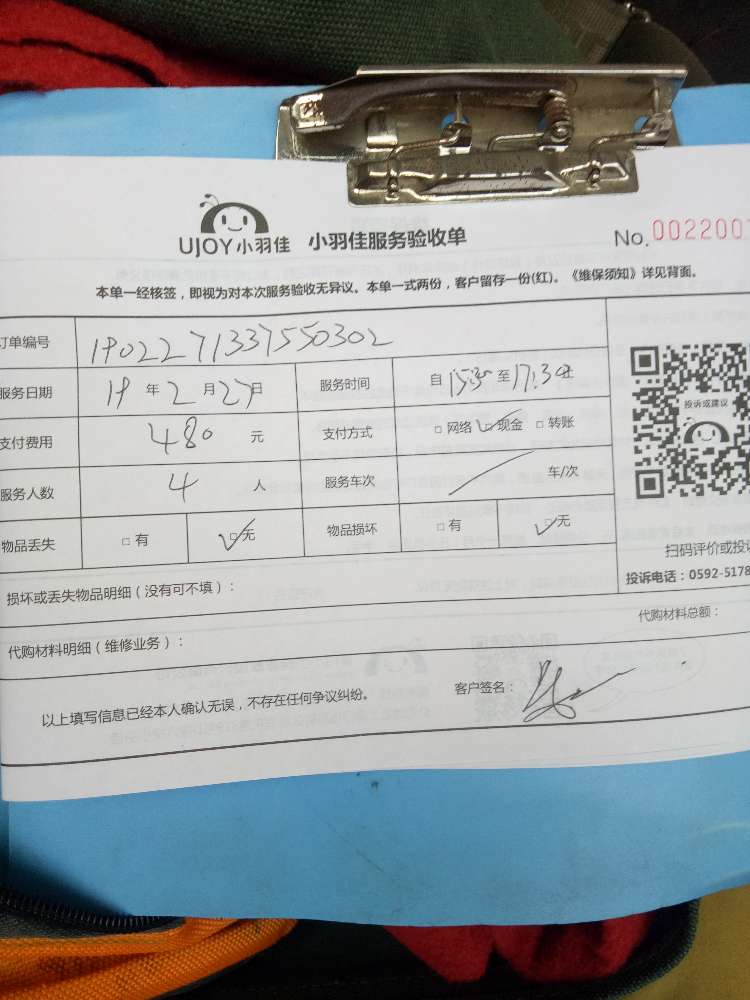 UJOY小羽佳 小羽佳服务验收单 No.002200
本单一经核签，即视为对本次服务验收无异议。本单一式两份，客户留存一份(红)。《维保须知》详见背面。
订单编号 1902271337550302
服务日期 19 年 2 月 27 日 服务时间 自 15:30 至 17:30 止
支付费用 480 元 支付方式 □ 网络 ☑ 现金 □ 转账
服务人数 4 人 服务车次 / 车/次
物品丢失 □ 有 ☑ 无 物品损坏 □ 有 ☑ 无
投诉或建议
扫码评价或投诉
投诉电话：0592-5178
损坏或丢失物品明细（没有可不填）：
代购材料明细（维修业务）： 代购材料总额：
以上填写信息已经本人确认无误，不存在任何争议纠纷。 客户签名：